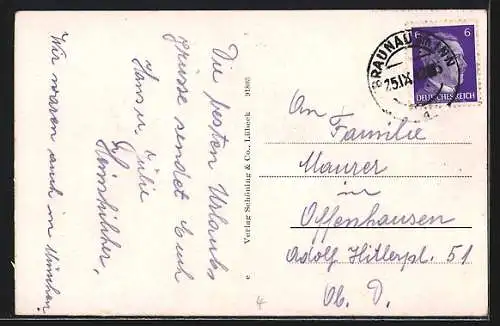 Die besten Urlaubs
grüsse sendet Euch
Hans u. Julie
Wir waren auch in München.
Verlag Schöning & Co., Lübeck
e
BRAUNAU
25.IX.
a
6
6
DEUTSCHES REICH
An
Familie
Maurer
in
Offenhausen
Adolf Hitlerpl. 51
Ob. D.
4